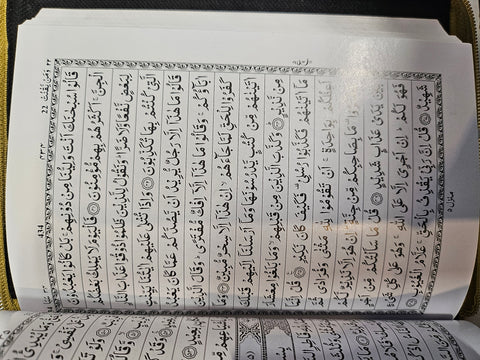 ومن یقنت ٢٢
434
قَالُوْا سُبْحٰنَكَ اَنْتَ وَلِيُّنَا مِنْ دُوْنِهِمْ ۚ بَلْ كَانُوْا يَعْبُدُوْنَ
الْجِنَّ ۚ اَكْثَرُهُمْ بِهِمْ مُّؤْمِنُوْنَ ۝ فَالْيَوْمَ لَا يَمْلِكُ بَعْضُكُمْ
لِبَعْضٍ نَّفْعًا وَّلَا ضَرًّا ۭ وَنَقُوْلُ لِلَّذِيْنَ ظَلَمُوْا ذُوْقُوْا عَذَابَ النَّارِ
الَّتِيْ كُنْتُمْ بِهَا تُكَذِّبُوْنَ ۝ وَاِذَا تُتْلٰى عَلَيْهِمْ اٰيٰتُنَا بَيِّنٰتٍ
قَالُوْا مَا هٰذَآ اِلَّا رَجُلٌ يُّرِيْدُ اَنْ يَّصُدَّكُمْ عَمَّا كَانَ يَعْبُدُ
اٰبَآؤُكُمْ ۚ وَقَالُوْا مَا هٰذَآ اِلَّآ اِفْكٌ مُّفْتَرًى ۭ وَقَالَ الَّذِيْنَ
كَفَرُوْا لِلْحَقِّ لَمَّا جَآءَهُمْ ۙ اِنْ هٰذَآ اِلَّا سِحْرٌ مُّبِيْنٌ ۝ وَمَآ
اٰتَيْنٰهُمْ مِّنْ كُتُبٍ يَّدْرُسُوْنَهَا وَمَآ اَرْسَلْنَآ اِلَيْهِمْ قَبْلَكَ
مِنْ نَّذِيْرٍ ۝ وَكَذَّبَ الَّذِيْنَ مِنْ قَبْلِهِمْ ۙ وَمَا بَلَغُوْا مِعْشَارَ
مَآ اٰتَيْنٰهُمْ فَكَذَّبُوْا رُسُلِيْ ۣ فَكَيْفَ كَانَ نَكِيْرِ ۝ قُلْ اِنَّمَآ
اَعِظُكُمْ بِوَاحِدَةٍ ۚ اَنْ تَقُوْمُوْا لِلّٰهِ مَثْنٰى وَفُرَادٰى ثُمَّ
تَتَفَكَّرُوْا ۣ مَا بِصَاحِبِكُمْ مِّنْ جِنَّةٍ ۭ اِنْ هُوَ اِلَّا نَذِيْرٌ لَّكُمْ
بَيْنَ يَدَيْ عَذَابٍ شَدِيْدٍ ۝ قُلْ مَا سَاَلْتُكُمْ مِّنْ اَجْرٍ
فَهُوَ لَكُمْ ۭ اِنْ اَجْرِيَ اِلَّا عَلَى اللّٰهِ ۚ وَهُوَ عَلٰى كُلِّ شَيْءٍ
شَهِيْدٌ ۝ قُلْ اِنَّ رَبِّيْ يَقْذِفُ بِالْحَقِّ ۚ عَلَّامُ الْغُيُوْبِ ۝
منزل ٥